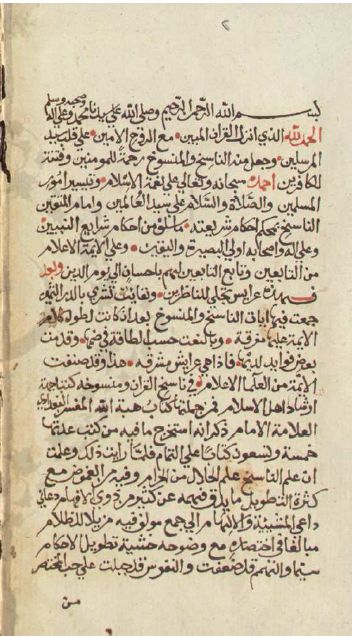 ٢
بسم الله الرحمن الرحيم وصلى الله على سيدنا محمد وعلى اله وصحبه وسلم
الحمد لله الذي انزل القران المبين مع الروح الامين على قلب سيد
المرسلين وجعل منه الناسخ والمنسوخ رحمة للمومنين وفتنة
للكافرين احمده سبحانه وتعالى على نعمة الاسلام وتيسير امور
المسلمين والصلاة والسلام على سيد العالمين وامام المتقين
الناسخ بمحكم احكام شريعته ما سلف من احكام شرايع النبيين
وعلى اله واصحابه اولي البصيرة واليقين وعلى الايمة الاعلام
من التابعين وتابع التابعين لهم باحسان الى يوم الدين وبعد
فهذه عرايس تجلى للناظرين ونفايس تشرى بالدر الثمين
جمعت فيها ايات الناسخ والمنسوخ بعد ان كانت لطول كلام
الايمة عليها متفرقة وبالغت حسب الطاقة في ضمها وقدمت
بعض فوايد لديها فاذا هي عرايش مشرقة هذا وقد صنفت
الايمة من العلما الاعلام في ناسخ القران ومنسوخه كتبا جمة
ارشاد اهل الاسلام فمن جملتها كتاب هبة الله المفسر البغدادي
العلامة الامام ذكر انه استخرج ما فيه من كتب عدتها
خمسة وتسعون كتابا على التمام فلما رايت ذلك وعلمت
ان علم الناسخ علم الحلال من الحرام وفيه من الغموض مع
كثرة التطويل ما يدق فهمه عن كثير من ذوي الافهام دعاني
داعي المشيئة والالهام الى جمع مولف فيه مزيلا للظلام
مبالغا في اختصاره مع وضوحه خشية تطويل الاحكام
سيما والهمم قد ضعفت والنفوس قد جبلت على حب المختصر
من